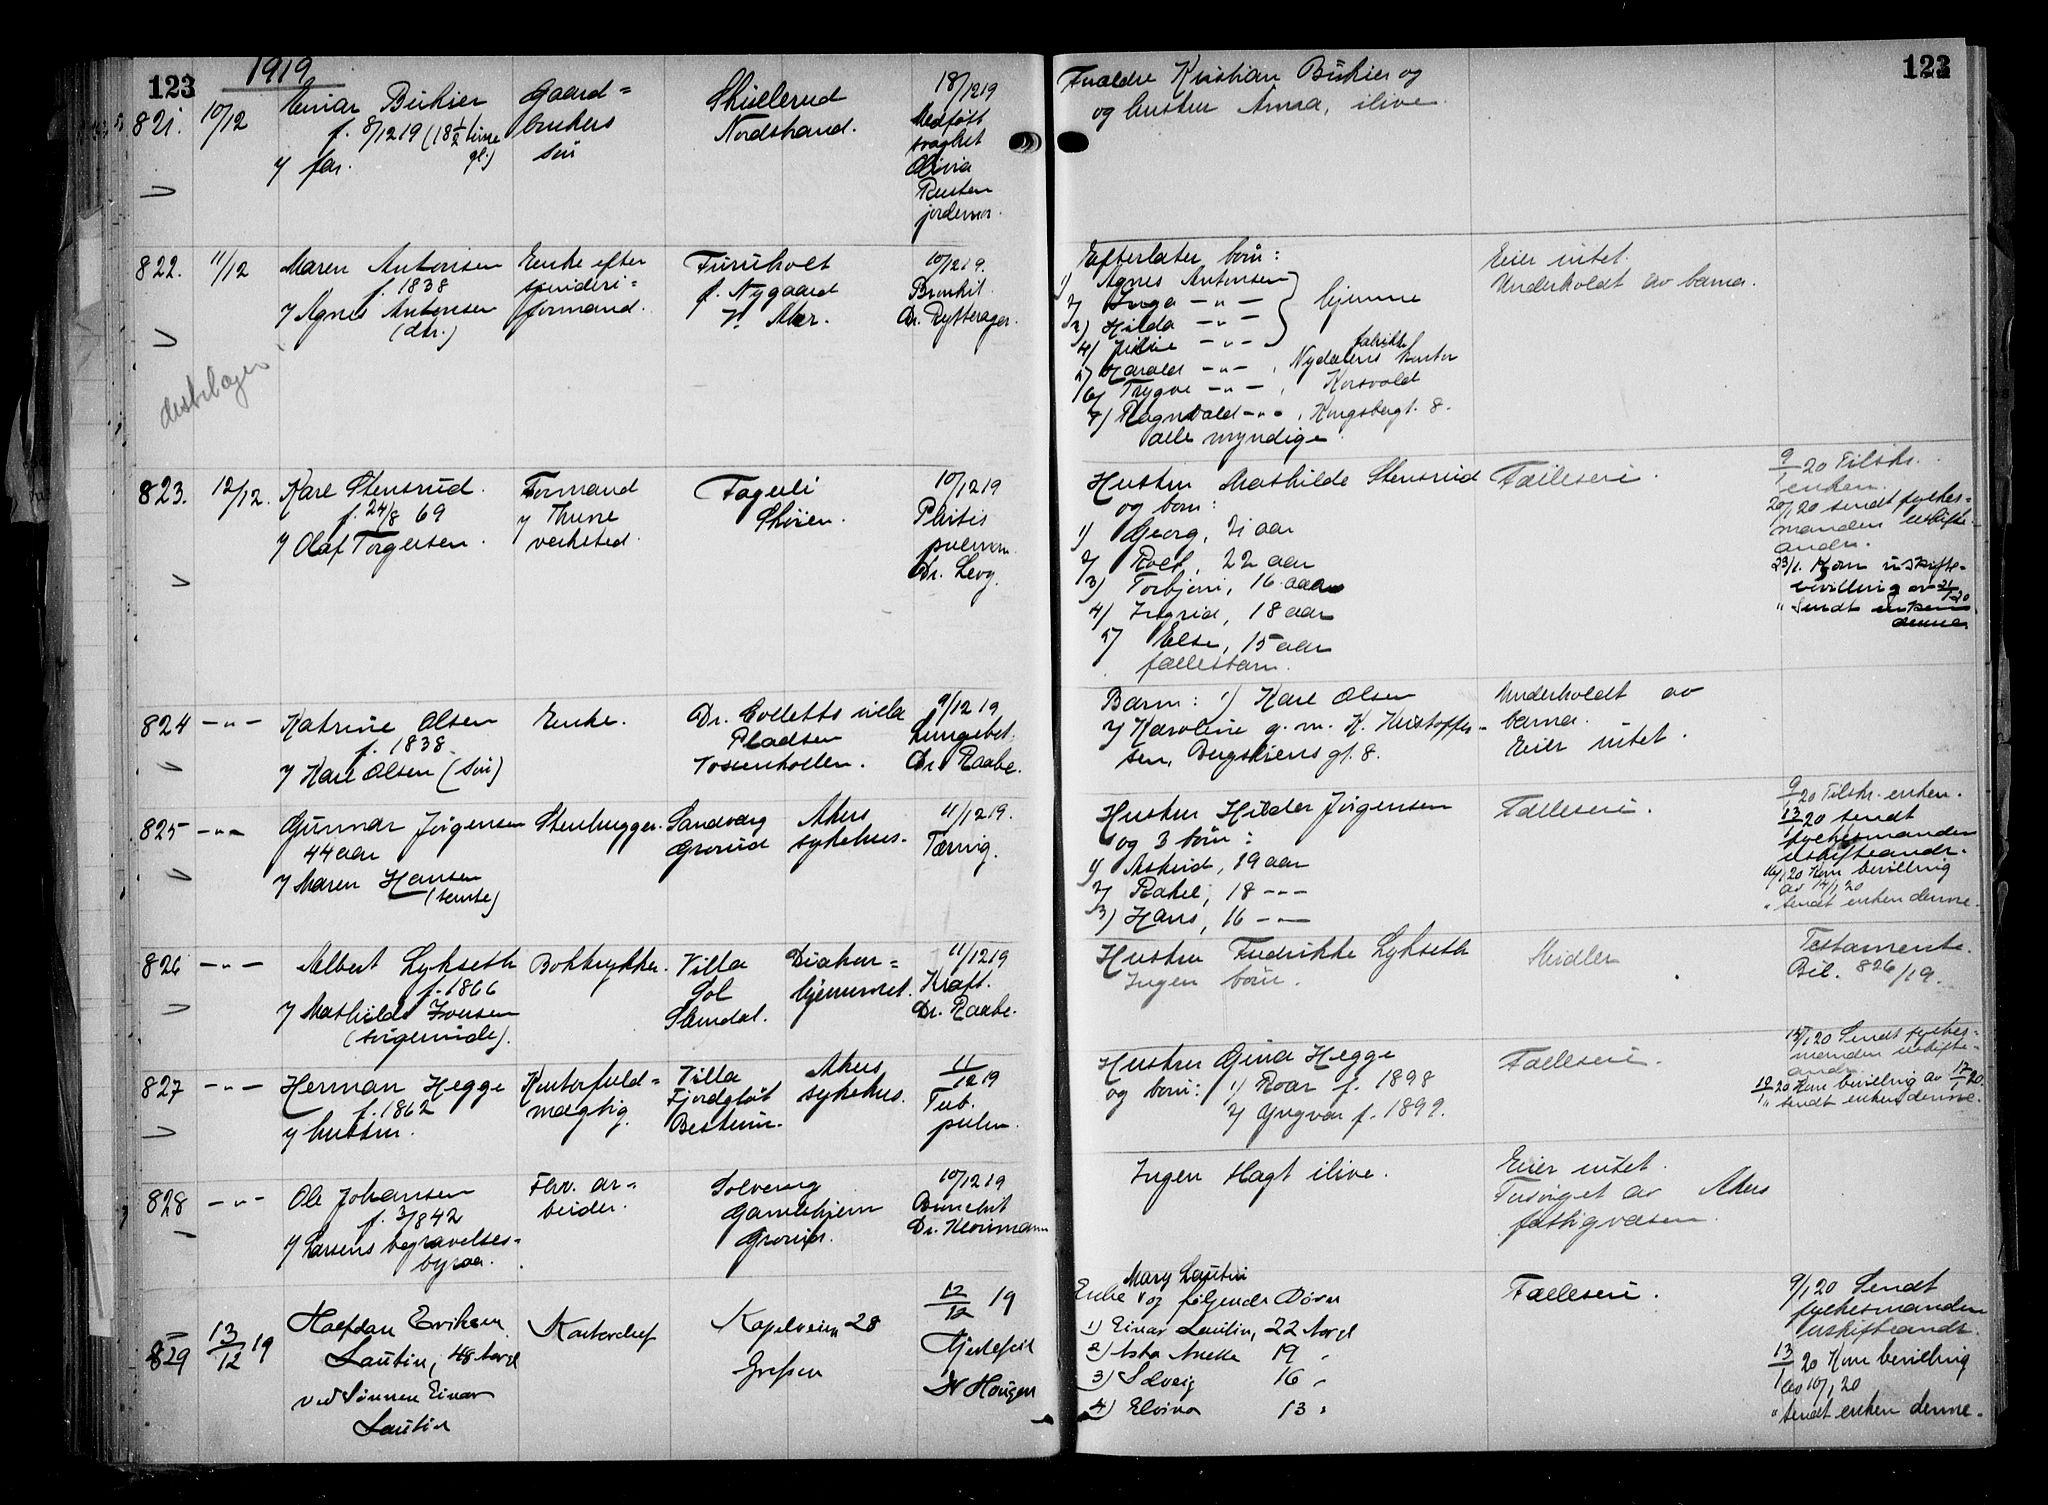 123
1919
123
821.
10/12
Einar Bükier
f. 8/12 19 (18 1/2 time gl.)
v/ far.
Gaard=
brukers
søn
Skullerud
Nordstrand.
18/12 19
Medfødt
svaghet
Olivia
Rusten
jordemor.
Forældre Kristian Bükier og
og hustru Anna, ilive.
822.
11/12
Maren Antonsen
f. 1838
v/ Agnes Antonsen
(dtr.)
Enke efter
spinderi=
formand.
Furuholt
p. Nygaard
V. Aker.
10/12 19.
Bronkit.
Dr. Rytterager.
Efterlater børn:
1) Agnes Antonsen
2) Inga -"-
3) Hilda -"-
hjemme
4) -"-
5) Harald -"- , Nydalens fabrikk kontor
6) Trygve -"- , Korsvold
7) Ragnvald -"- , Kongsbergt. 8.
alle myndige.
Eier intet.
Underholdt av barna.
823.
12/12.
Karl Stensrud.
f. 24/8 69
v/ Olaf Torgersen.
Formand
v/ Thune
verksted.
Fagerli
Skøien.
10/12 19
Phtisis
pulmon.
Dr. Levy.
Hustru Mathilde Stensrud
og børn:
1) Georg, 21 aar
2) Rolf, 22 aar
3) Torbjørn, 16 aar
4) Ingrid, 18 aar
5) Else, 15 aar
fællesbarn.
Fælleseie.
9/1 20 Tilskr.
enken.
20/1 20 sendt fylkes=
manden uskifte=
andr.
23/1. Kom uskifte=
bevilling av 21/1 20
" Sendt enken
denne
824
-"-
Katrine Olsen
f. 1838.
v/ Karl Olsen (søn)
Enke.
Dr. Colletts villa
Pladsen
Voksenkollen.
9/12 19
Lungebet.
Dr. Raabe.
Barn: 1) Karl Olsen
2) Karoline g. m. K. Kristoffer=
sen, Bergsliens gt. 8.
Underholdt av
barna.
Eier intet.
825
-"-
Gunnar Jørgensen
44 aar
v/ Maren Hansen
(tante)
Stenhugger.
Sandvang
Grorud
Akers
sykehus.
11/12 19.
Tæring.
Hustru Hilda Jørgensen
og 3 børn:
1) Astrid, 19 aar
2) Rakel, 18 -"-
3) Hans, 16 -"-
Fælleseie.
9/1 20 Tilskr. enken.
13/1 20 sendt
fylkesmanden
uskifteandr.
16/1 20 Kom bevilling
av 14/1 20
" sendt enken denne.
826
-"-
Albert Lykseth
f. 1866
v/ Mathilde Iversen
(svigerinde).
Boktrykker.
Villa
Sol
Slemdal.
Diakon=
hjemmet.
11/12 19
Kræft.
Dr. Raabe.
Hustru Fredrikke Lykseth
Ingen børn.
Midler
Testamente.
Bil. 826/19.
827
-"-
Herman Hegge
f. 1862
v/ hustru.
Kontorfuld=
mægtig.
Villa
Fjordgløt
Bestum.
Akers
sykehus.
11/12 19
Tub.
pulm.
Hustru Gina Hegge
og børn: 1) Roar f. 1898
2) Yngvar f. 1899.
Fælleseie.
14/1 20 Sendt fylkes=
manden uskifte=
andr.
19/1 20 Kom bevilling av 17/1 20.
" sendt enken denne.
828
-"-
Ole Johansen
f. 3/8 42
v/ Larsens begravelses=
byraa.
Fhv. ar=
beider.
Solveng
Gamlehjem
Grorud.
10/12 19
Bronchit
Dr. Kloumann
Ingen slægt ilive.
Eier intet.
Forsørget av Akers
fattigvæsen.
829
13/12 19
Halfdan Eriksen
Lautin, 48 Aar gl
ved Sønnen Einar
Lautin
Kontorchef
Kapelveien 28
Grefsen
12/12 19
Hjertefeil
Dr Hougen
Mary Lautin
Enke og følgende Børn
1) Einar Lautin, 22 Aar gl
2) Asta Anette 19 "
3) Solveig 16 "
4) Elvina 13 "
Fælleseie.
9/1 20 Sendt
fylkesmanden
uskifteandr.
13/1 20 Kom bevilling
av 10/1 20
" sendt enken denne.